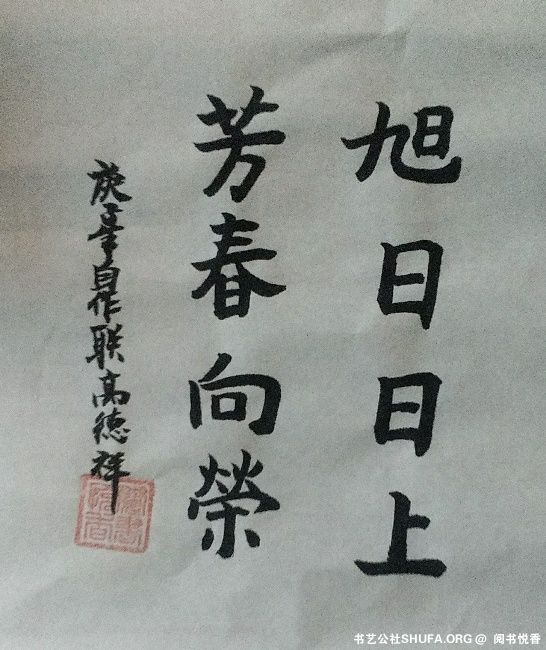 旭日日上
芳春向榮
自作联高德祥
书艺公社SHUFA.ORG @ 阅书悦香